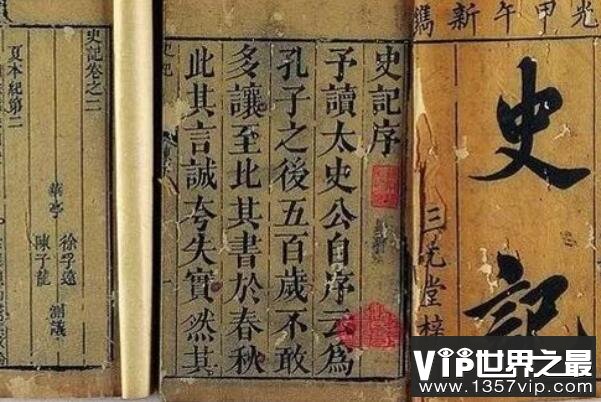 光甲午新鐫
史記
三元堂梓
史記序
予讀太史公自序云為
孔子之後五百歲不敢
多讓至此其書於春秋
此其言誠夸失實然其
史記
史記卷之二
夏本紀第二
華亭
徐孚遠
陳子龍
測議
VIP世界之最
www.1357vip.com